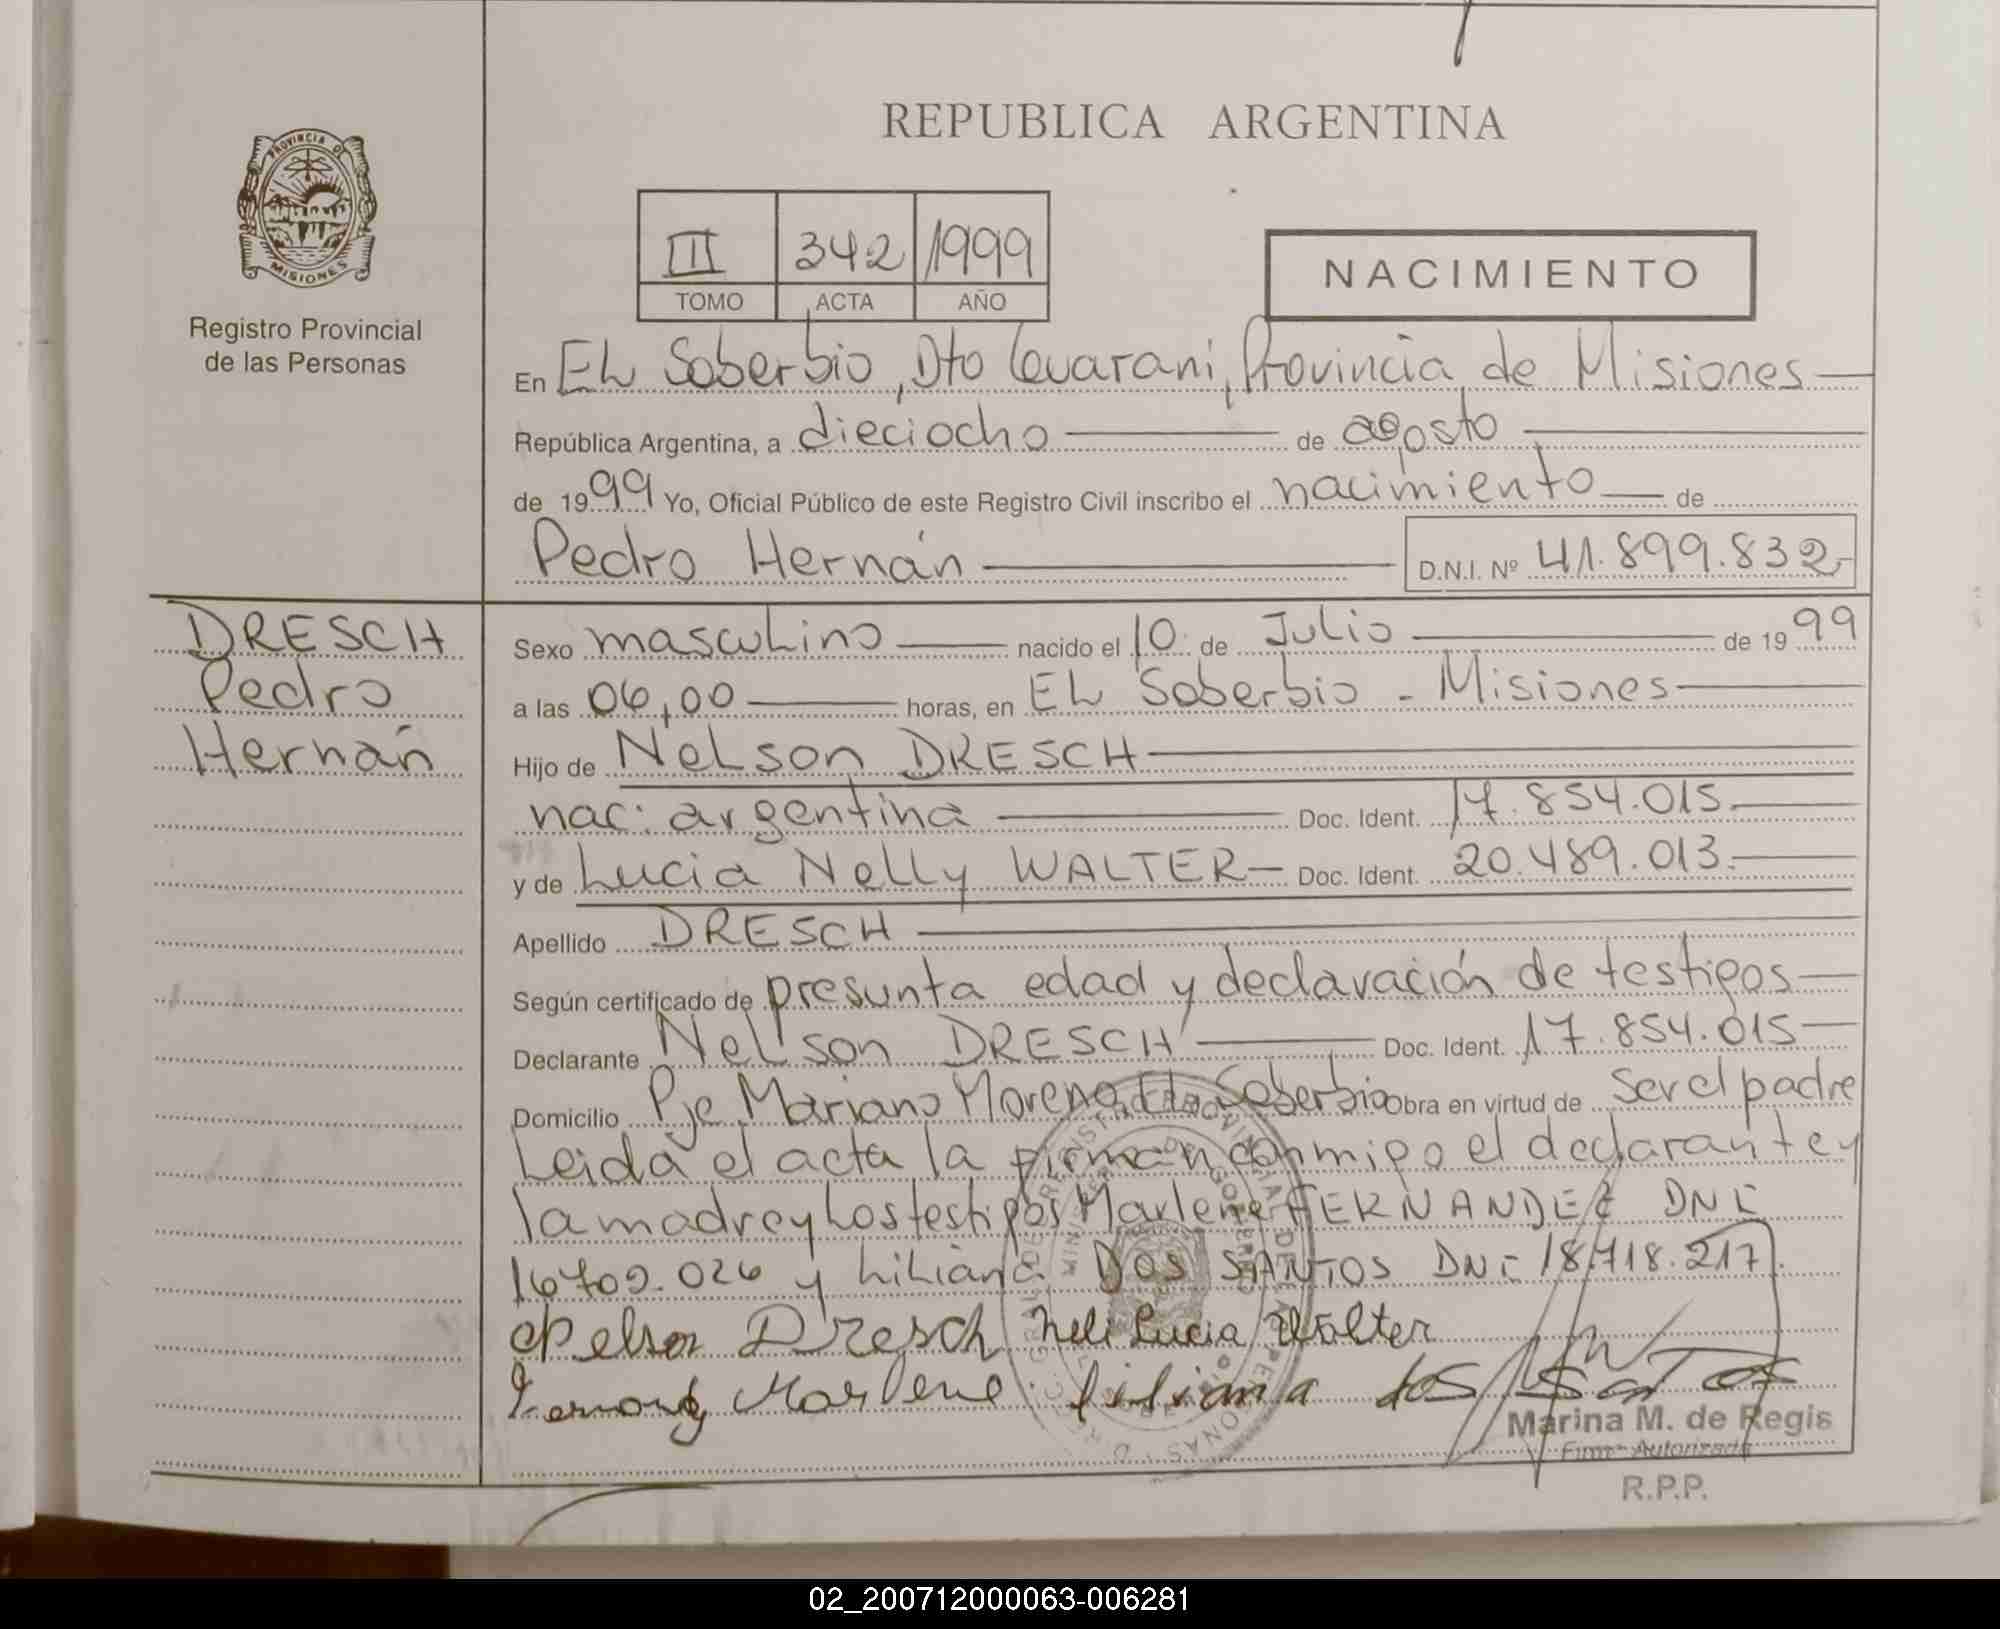 REPUBLICA ARGENTINA
PROVINCIA DE
MISIONES
Registro Provincial
de las Personas
III 342 1999
TOMO ACTA AÑO
NACIMIENTO
En EL Soberbio, Dto Guarani, Provincia de Misiones
República Argentina, a dieciocho de agosto
de 1999 Yo, Oficial Público de este Registro Civil inscribo el nacimiento de
Pedro Hernán D.N.I. Nº 41.899.832
DRESCH
Pedro
Hernán
Sexo masculino nacido el 10 de Julio de 1999
a las 06,00 horas, en EL Soberbio - Misiones
Hijo de Nelson DRESCH
nac: argentina Doc. Ident. 17.854.015
y de Lucia Nelly WALTER Doc. Ident. 20.489.013
Apellido DRESCH
Según certificado de presunta edad y declaración de testigos
Declarante Nelson DRESCH Doc. Ident. 17.854.015
Domicilio Pje Mariano Moreno EL Soberbio Obra en virtud de ser el padre
Leida el acta la firman conmigo el declarante y
la madre y los testigos Marlene FERNANDEZ DNI
16.709.026 y Liliana DOS SANTOS DNI 18.718.217.
Nelson Dresch Neli Lucia Walter
Marlene Liliana dos Santos
Marina M. de Regis
Firma Autorizada
R.P.P.
02_200712000063-006281